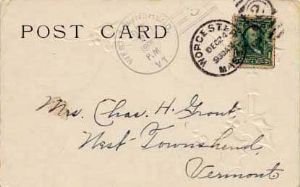 POST CARD
WEST TOWNSHEND
P.M.
VT.
WORCESTER
DEC 2
MASS
Mrs. Chas. H. Grout,
West Townshend,
Vermont